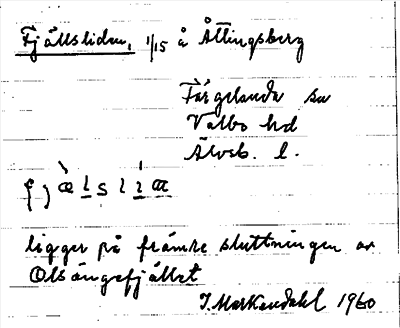 Fjällsliden, 1/15 å Åttingsberg
Färgelanda sn
Valbo hd
Älvsb. l.
fj̀ælslíɑ
ligger på främre sluttningen av
Olsängefjället
J. Markendahl 1960